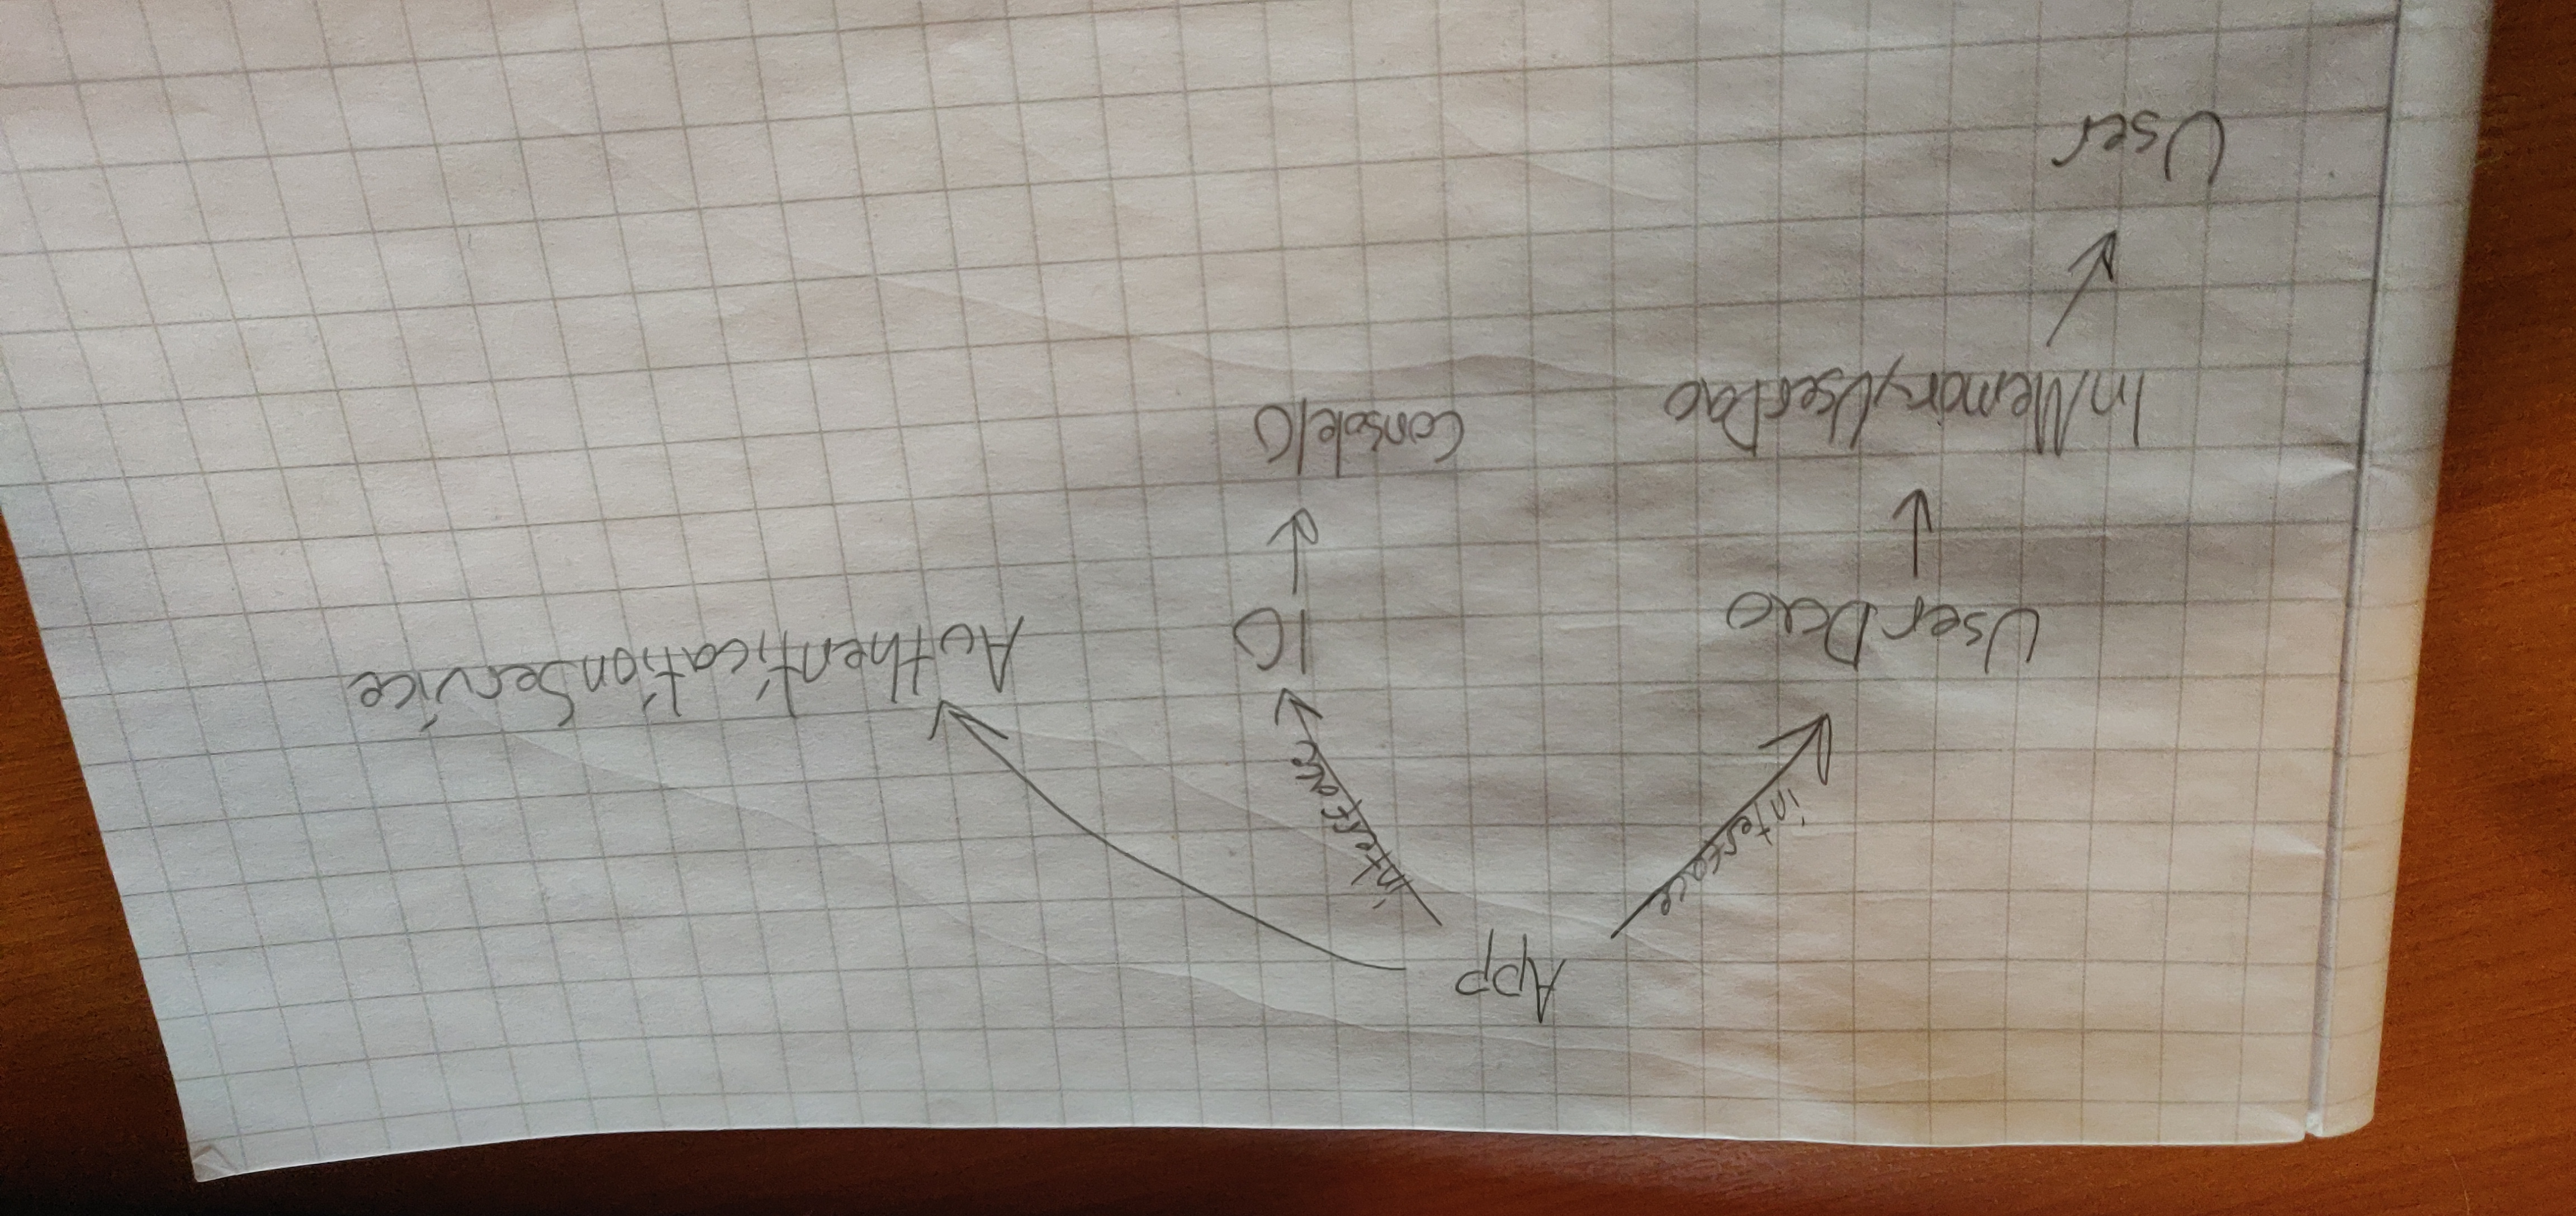 App
interface
interface
UserDao
IO
AuthenticationService
InMemoryUserDao
ConsoleIO
User